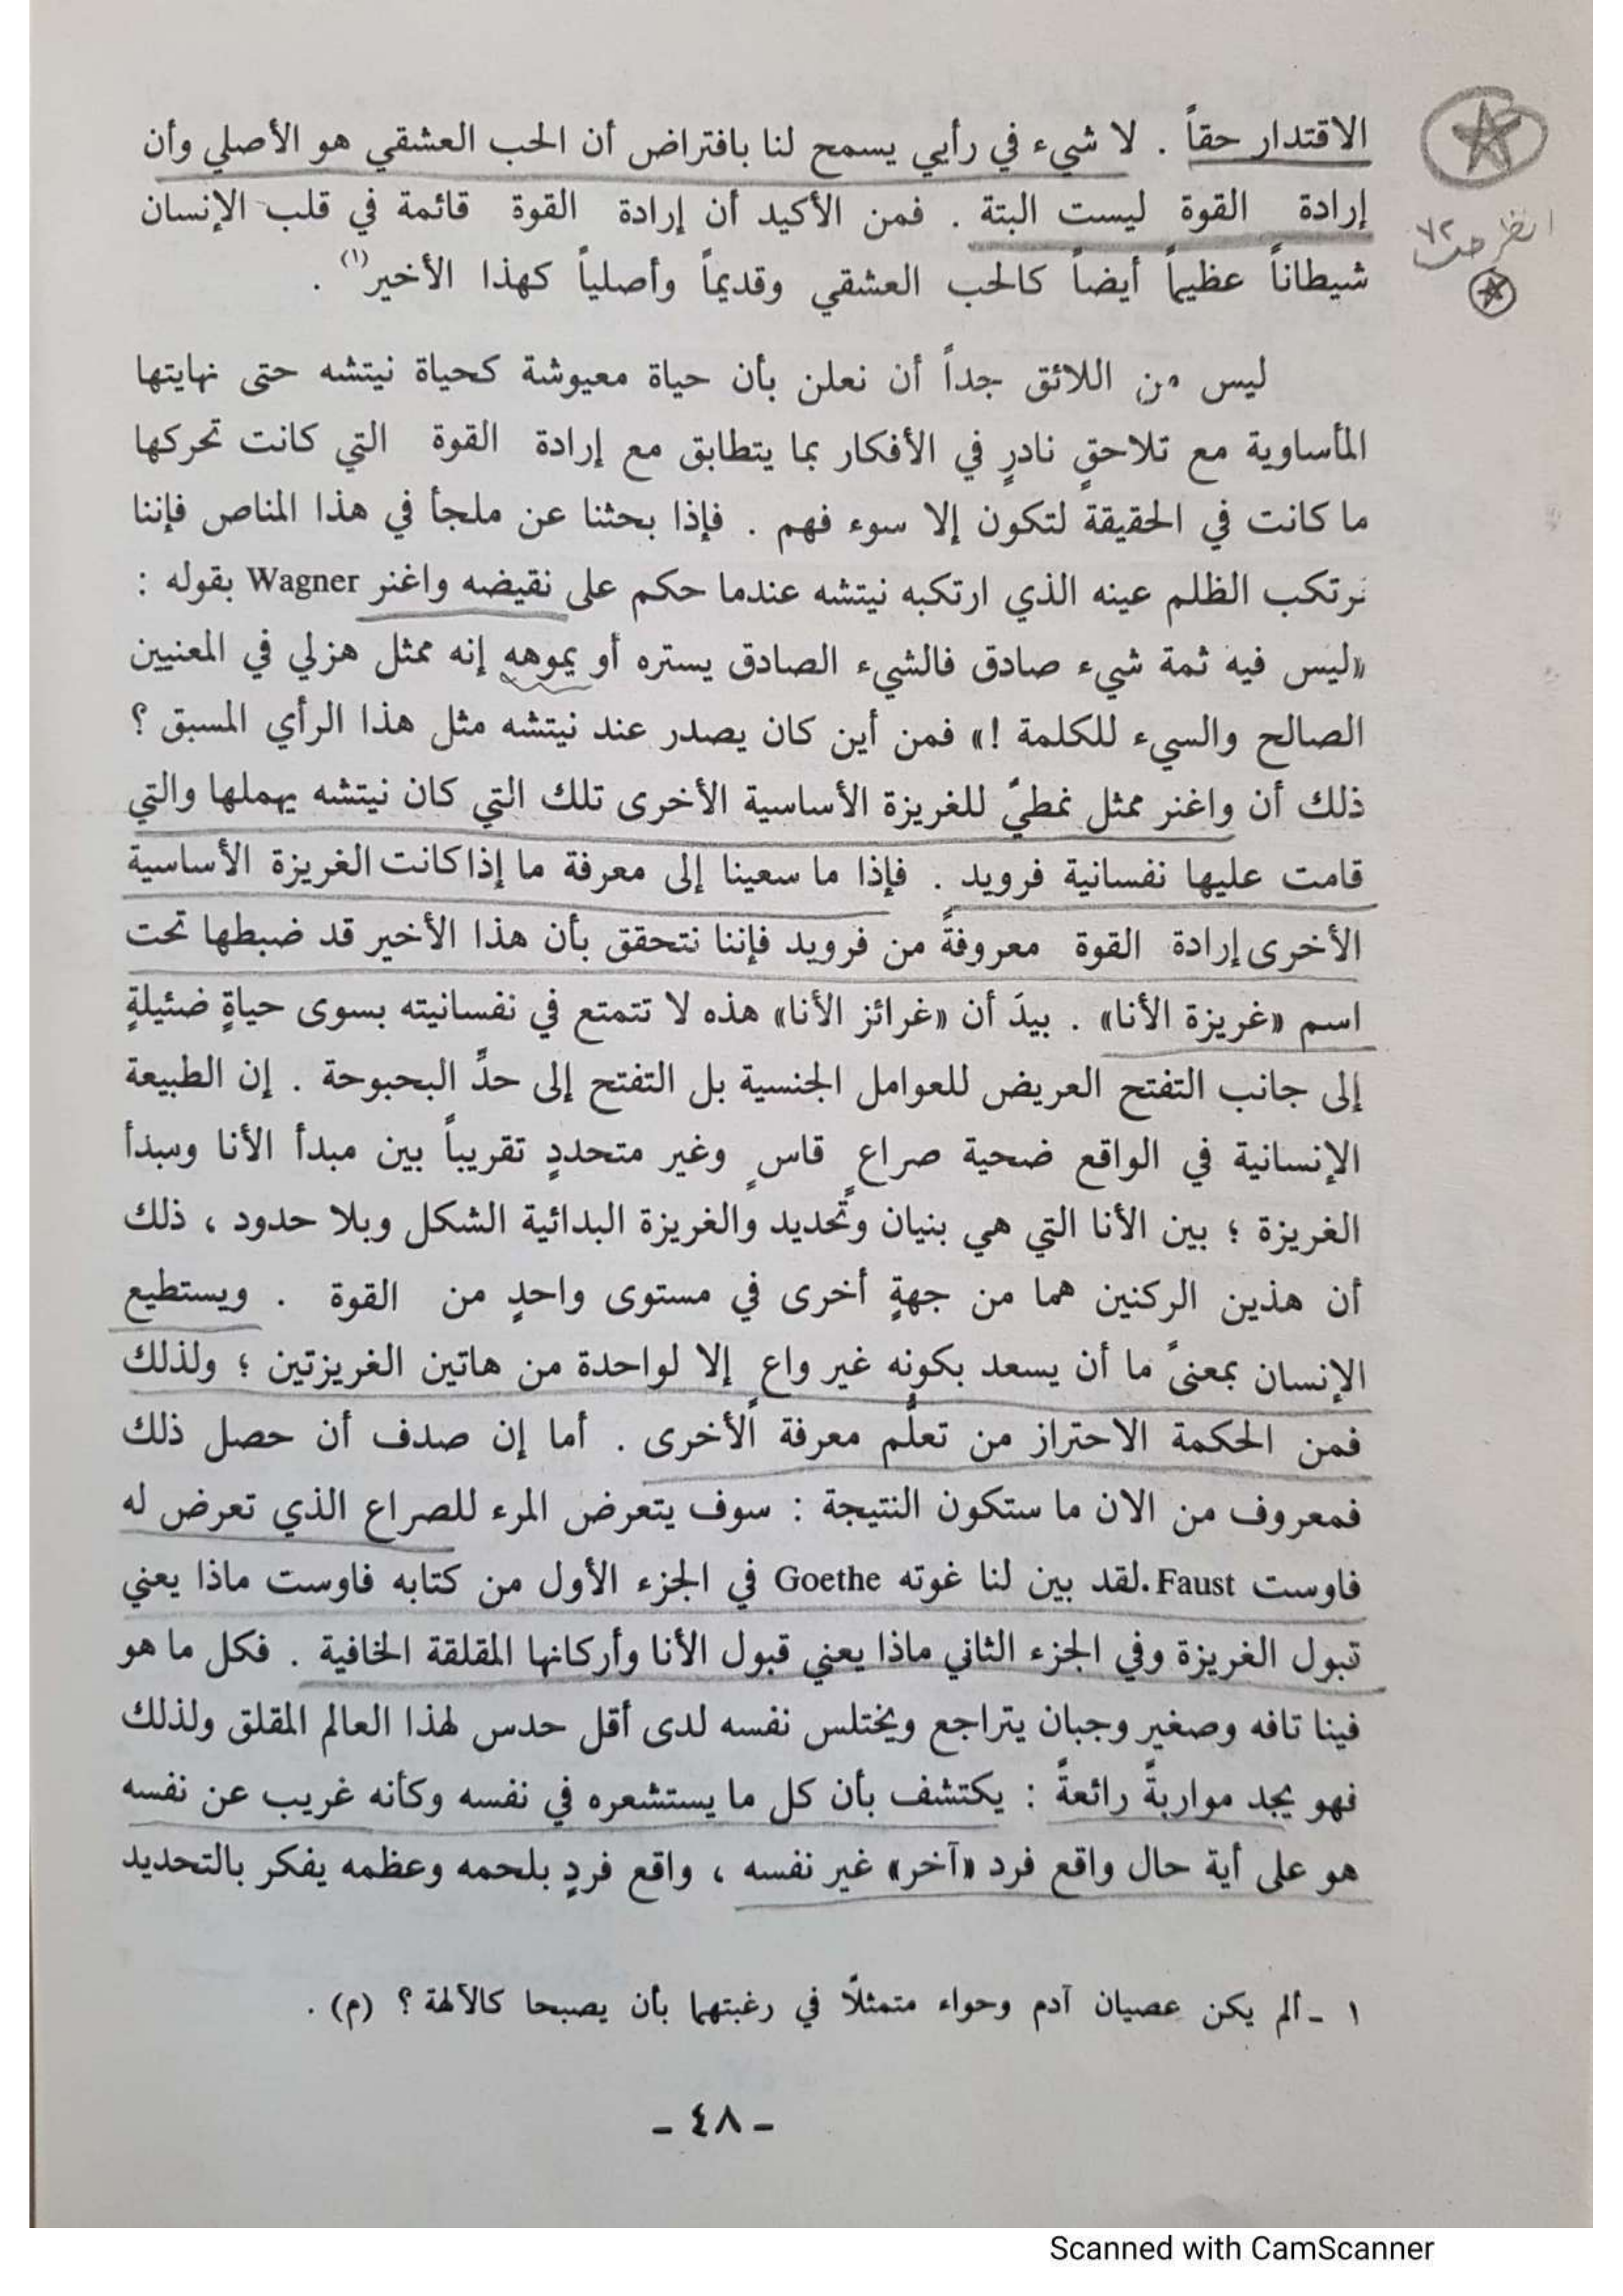 الاقتدار حقاً . لا شيء في رأيي يسمح لنا بافتراض أن الحب العشقي هو الأصلي وأن
إرادة القوة ليست البتة . فمن الأكيد أن إرادة القوة قائمة في قلب الإنسان
شيطاناً عظيماً أيضاً كالحب العشقي وقديماً وأصلياً كهذا الأخير(١) .
انظر ص ٧٢
ليس من اللائق جداً أن نعلن بأن حياة معيوشة كحياة نيتشه حتى نهايتها
المأساوية مع تلاحقٍ نادرٍ في الأفكار بما يتطابق مع إرادة القوة التي كانت تحركها
ما كانت في الحقيقة لتكون إلا سوء فهم . فإذا بحثنا عن ملجأ في هذا المناص فإننا
نرتكب الظلم عينه الذي ارتكبه نيتشه عندما حكم على نقيضه واغنر Wagner بقوله :
«ليس فيه ثمة شيء صادق فالشيء الصادق يستره أو يموهه إنه ممثل هزلي في المعنيين
الصالح والسيء للكلمة !» فمن أين كان يصدر عند نيتشه مثل هذا الرأي المسبق ؟
ذلك أن واغنر ممثل نمطيّ للغريزة الأساسية الأخرى تلك التي كان نيتشه يهملها والتي
قامت عليها نفسانية فرويد . فإذا ما سعينا إلى معرفة ما إذا كانت الغريزة الأساسية
الأخرى إرادة القوة معروفةً من فرويد فإننا نتحقق بأن هذا الأخير قد ضبطها تحت
اسم «غريزة الأنا» . بيدَ أن «غرائز الأنا» هذه لا تتمتع في نفسانيته بسوى حياةٍ ضئيلةٍ
إلى جانب التفتح العريض للعوامل الجنسية بل التفتح إلى حدِّ البحبوحة . إن الطبيعة
الإنسانية في الواقع ضحية صراعٍ قاسٍ وغير متحددٍ تقريباً بين مبدأ الأنا ومبدأ
الغريزة ؛ بين الأنا التي هي بنيان وتحديد والغريزة البدائية الشكل وبلا حدود ، ذلك
أن هذين الركنين هما من جهةٍ أخرى في مستوى واحدٍ من القوة . ويستطيع
الإنسان بمعنىً ما أن يسعد بكونه غير واعٍ إلا لواحدة من هاتين الغريزتين ؛ ولذلك
فمن الحكمة الاحتراز من تعلُّم معرفة الأخرى . أما إن صدف أن حصل ذلك
فمعروف من الان ما ستكون النتيجة : سوف يتعرض المرء للصراع الذي تعرض له
فاوست Faust. لقد بين لنا غوته Goethe في الجزء الأول من كتابه فاوست ماذا يعني
قبول الغريزة وفي الجزء الثاني ماذا يعني قبول الأنا وأركانها المقلقة الخافية . فكل ما هو
فينا تافه وصغير وجبان يتراجع ويختلس نفسه لدى أقل حدس لهذا العالم المقلق ولذلك
فهو يجد مواربةً رائعةً : يكتشف بأن كل ما يستشعره في نفسه وكأنه غريب عن نفسه
هو على أية حال واقع فرد «آخر» غير نفسه ، واقع فردٍ بلحمه وعظمه يفكر بالتحديد
١ - ألم يكن عصيان آدم وحواء متمثلاً في رغبتهما بأن يصبحا كالآلهة ؟ (م) .
- ٤٨ -
Scanned with CamScanner